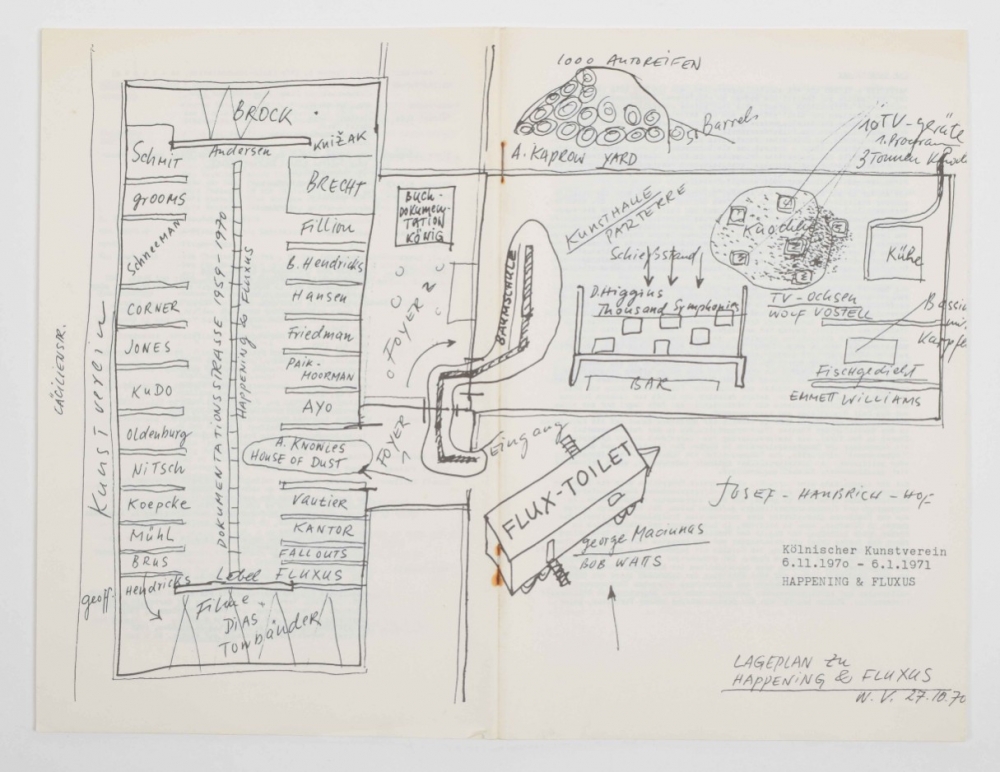 CÄCILIENSTR.
Kunstverein
BROCK
Andersen
KNIŽAK
Schmit
GROOMS
Schneeman
CORNER
JONES
KuDO
Oldenburg
NiTSCH
Koepcke
MÜHL
BRUS
geoff. Hendricks
DOKUMENTATIONSSTRASSE 1959-1970
HAPPENING & FLUXUS
BRECHT
Fillion
B. Hendricks
Hansen
Friedman
PAIK-
MOORMAN
AYO
A. KNOWLES
HOUSE OF DUST
Vautier
KANTOR
FALLOUTS
FLUXUS
Lebel
Filme
DIAS
TONBÄNDER
BUCH-
DOKUMEN-
TATION
KÖNIG
FOYER
FOYER
BAUMSCHULE
Eingang
1000 AUTOREIFEN
Barrels
A. KAPROW YARD
KUNSTHALLE
PARTERRE
Schießstand
D. Higgins
Thousand Symphonies
BAR
10 TV-geräte
1. Program
3 Tonnen
Knochen
TV-OCHSEN
WOLF VOSTELL
Kühe
Bassin
mi
Karpfe
Fischgedicht
EMMETT WILLIAMS
FLUX-TOILET
george Maciunas
BOB WATTS
JOSEF-HAUBRICH-HOF
Kölnischer Kunstverein
6.11.1970 - 6.1.1971
HAPPENING & FLUXUS
LAGEPLAN zu
HAPPENING & FLUXUS
W. V. 27.10.70